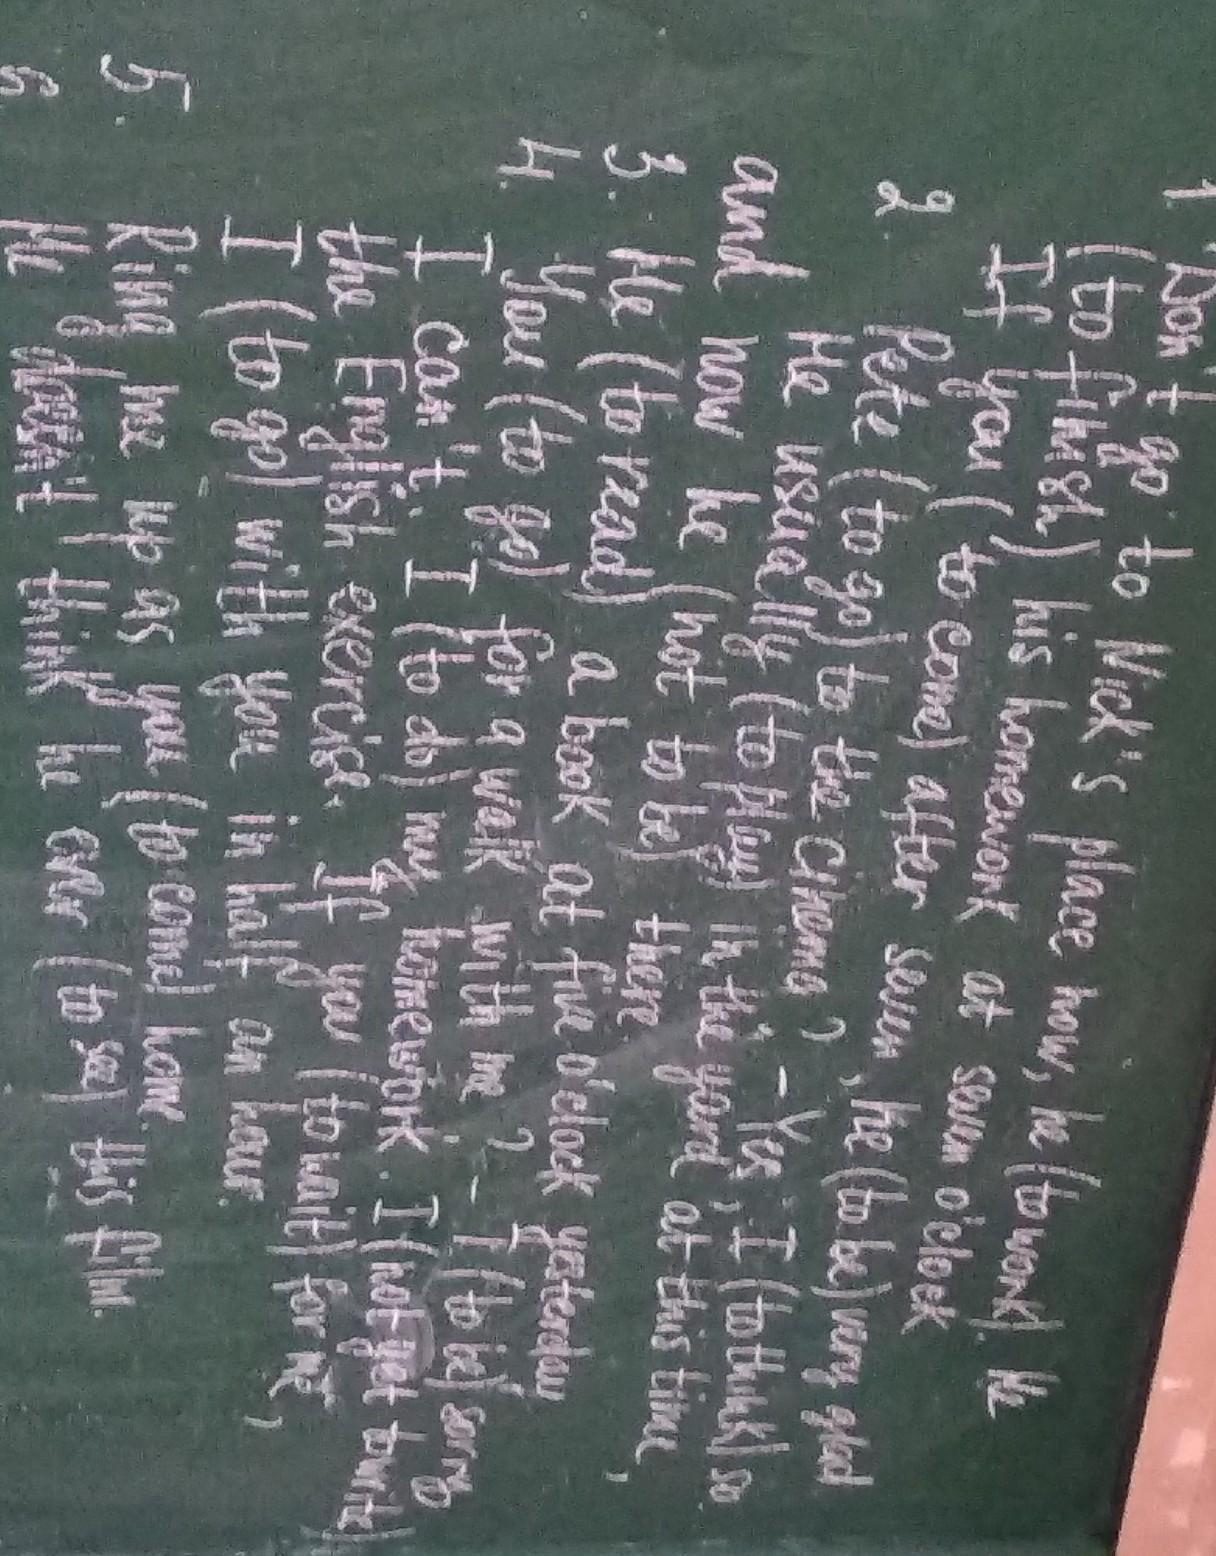 1. Don't go to Nick's place now, he (to work). He
(to finish) his homework at seven o'clock
If you (to come) after seven, he (to be) very glad
2. Pete (to go) to the cinema? - Yes, I (to think) so.
He usually (to play) in the yard at this time,
and now he (not to be) there
3. He (to read) a book at five o'clock yesterday
4. You (to go) for a walk with me? - I (to be) sorry
I can't. I (to do) my homework. I (not yet to write)
the English exercise. If you (to wait) for me,
I (to go) with you in half an hour.
5. Ring me up as you (to come) home.
6. He doesn't think he ever (to see) this film.